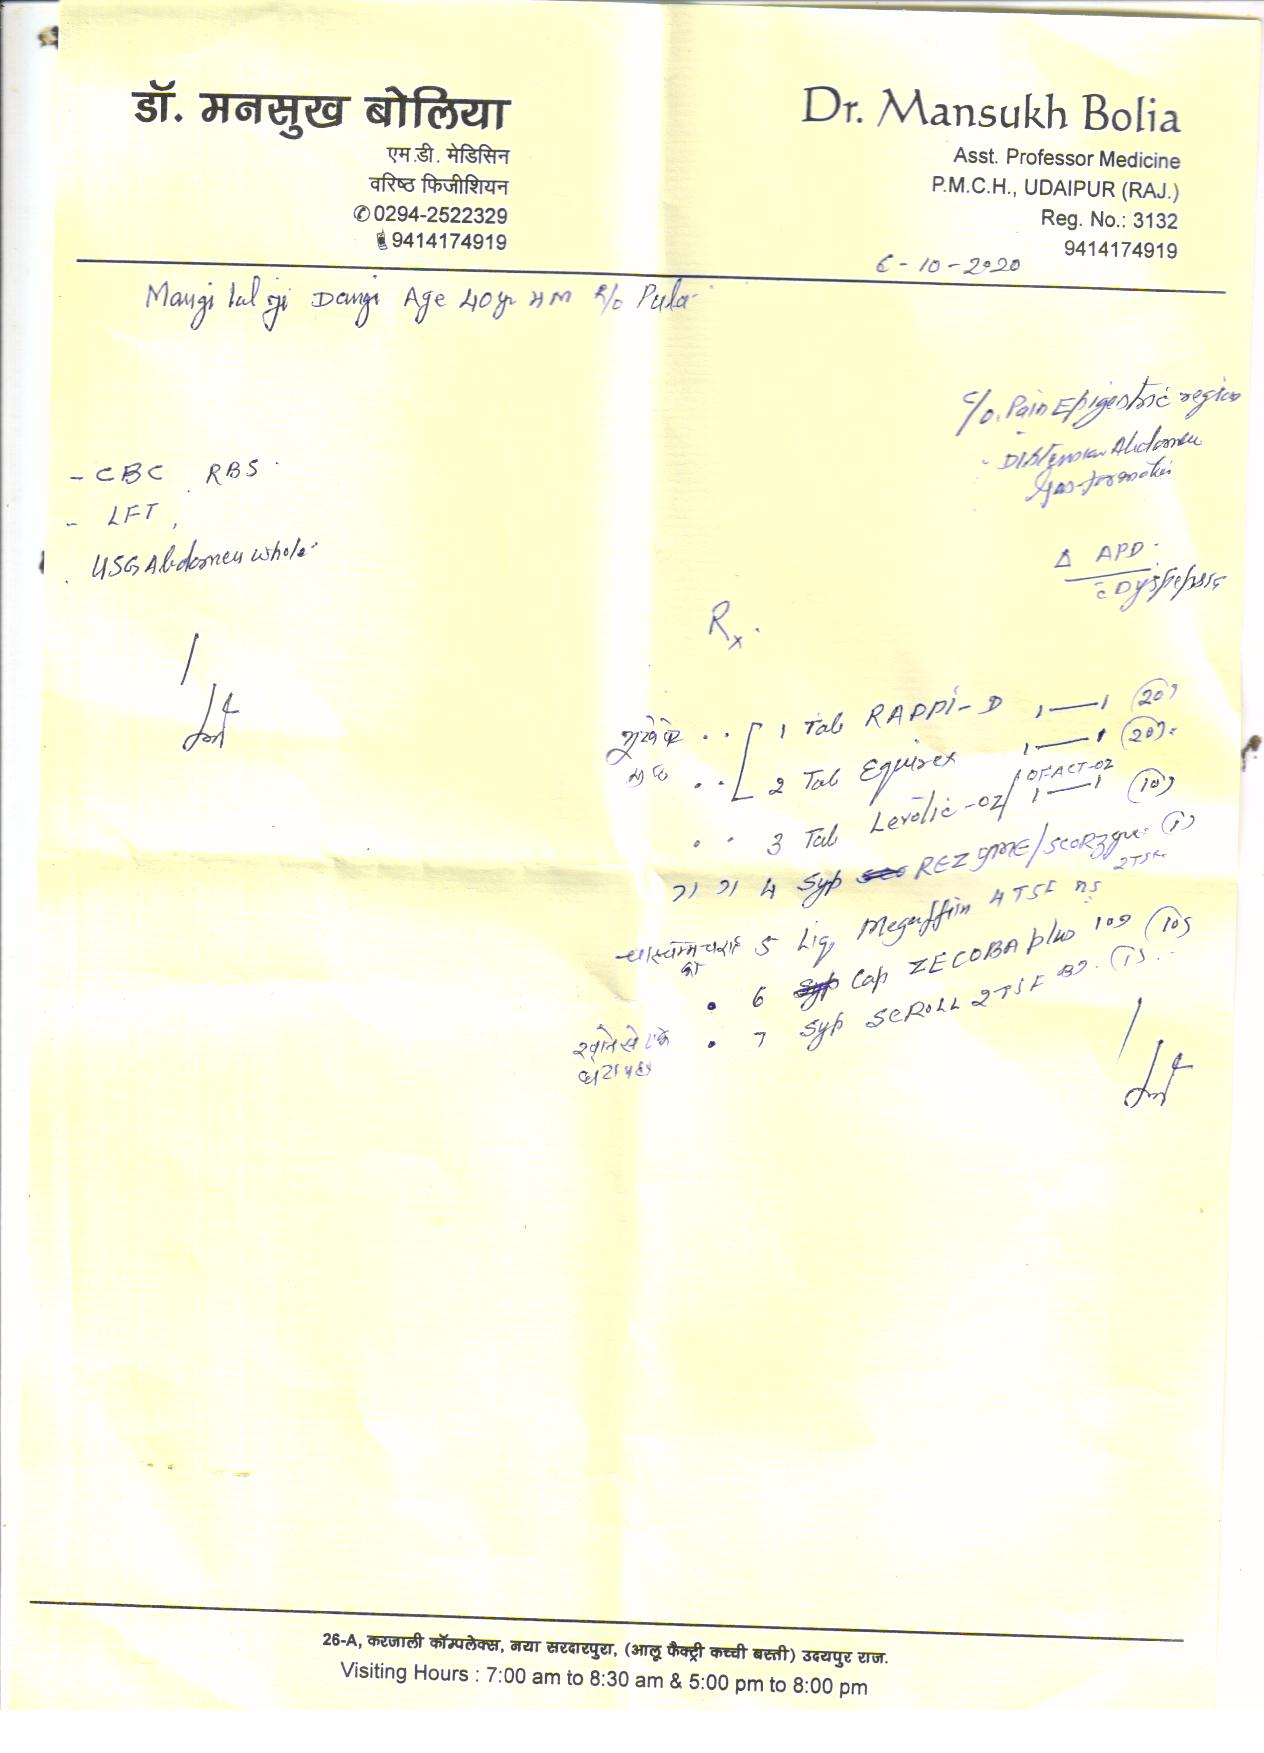 डॉ. मनसुख बोलिया
एम.डी. मेडिसिन
वरिष्ठ फिजीशियन
✆ 0294-2522329
9414174919
Dr. Mansukh Bolia
Asst. Professor Medicine
P.M.C.H., UDAIPUR (RAJ.)
Reg. No.: 3132
9414174919
6-10-2020
Mangi lal ji Dangi Age 40yr R/o Pula
c/o. Pain Epigestric region
- Distension Abdomen
Gas formation
- CBC RBS
- LFT,
. USG Abdomen whole
Δ APD
c̄ Dyspepsia
Rx.
1 Tab RAPPI-D 1—1 (20)
2 Tab Equirex 1—1 (20)
3 Tab Levolic-OZ / OFACT-OZ 1—1 (10)
4 Syp REZ 2TSF (1)
5 Liq Megaffin 4 TSF
6 Cap ZECOBA plus 10D (10)
7 Syp SCROLL 2TSF BD. (1)
26-A, करजाली कॉम्पलेक्स, नया सरदारपुरा, (आलू फैक्ट्री कच्ची बस्ती) उदयपुर राज.
Visiting Hours : 7:00 am to 8:30 am & 5:00 pm to 8:00 pm